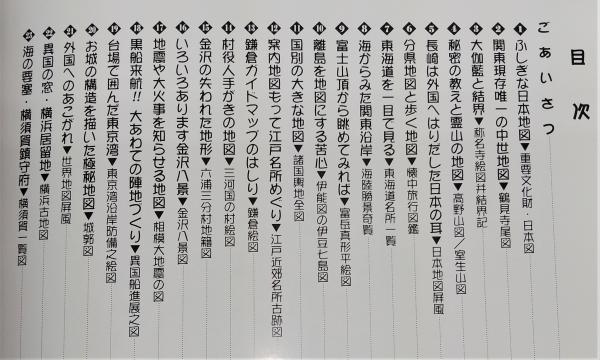 目次
ごあいさつ
❶ふしぎな日本地図▼重要文化財・日本図
❷関東現存唯一の中世地図▼鶴見寺尾図
❸大伽藍と結界▼称名寺絵図幷結界記
❹秘密の教えと霊山の地図▼高野山図／室生山図
❺長崎は外国へはりだした日本の耳▼日本地図屏風
❻分県地図と歩く地図▼懐中旅行図鑑
❼東海道を一目で見る▼東海道名所一覧
❽海からみた関東沿岸▼海陸勝景奇覧
❾富士山頂から眺めてみれば▼富岳真形平絵図
❿離島を地図にする苦心▼伊能図の伊豆七島図
⓫国別の大きな地図▼諸国輿地全図
⓬案内地図もって江戸名所めぐり▼江戸近郊名所古跡図
⓭鎌倉ガイドマップのはしり▼鎌倉絵図
⓮村役人手がきの地図▼三河国の村絵図
⓯金沢の失われた地形▼六浦三分村地籍図
⓰いろいろあります金沢八景▼金沢八景図
⓱地震や大火事を知らせる地図▼相模大地震の図
⓲黒船来航!!大あわての陣地づくり▼異国船進展之図
⓳台場で囲んだ東京湾▼東京湾沿岸防備之絵図
⓴お城の構造を描いた極秘地図▼城郭図
㉑外国へのあこがれ▼世界地図屏風
㉒異国の窓・横浜居留地▼横浜古地図
㉓海の要塞・横須賀鎮守府▼横須賀一覧図